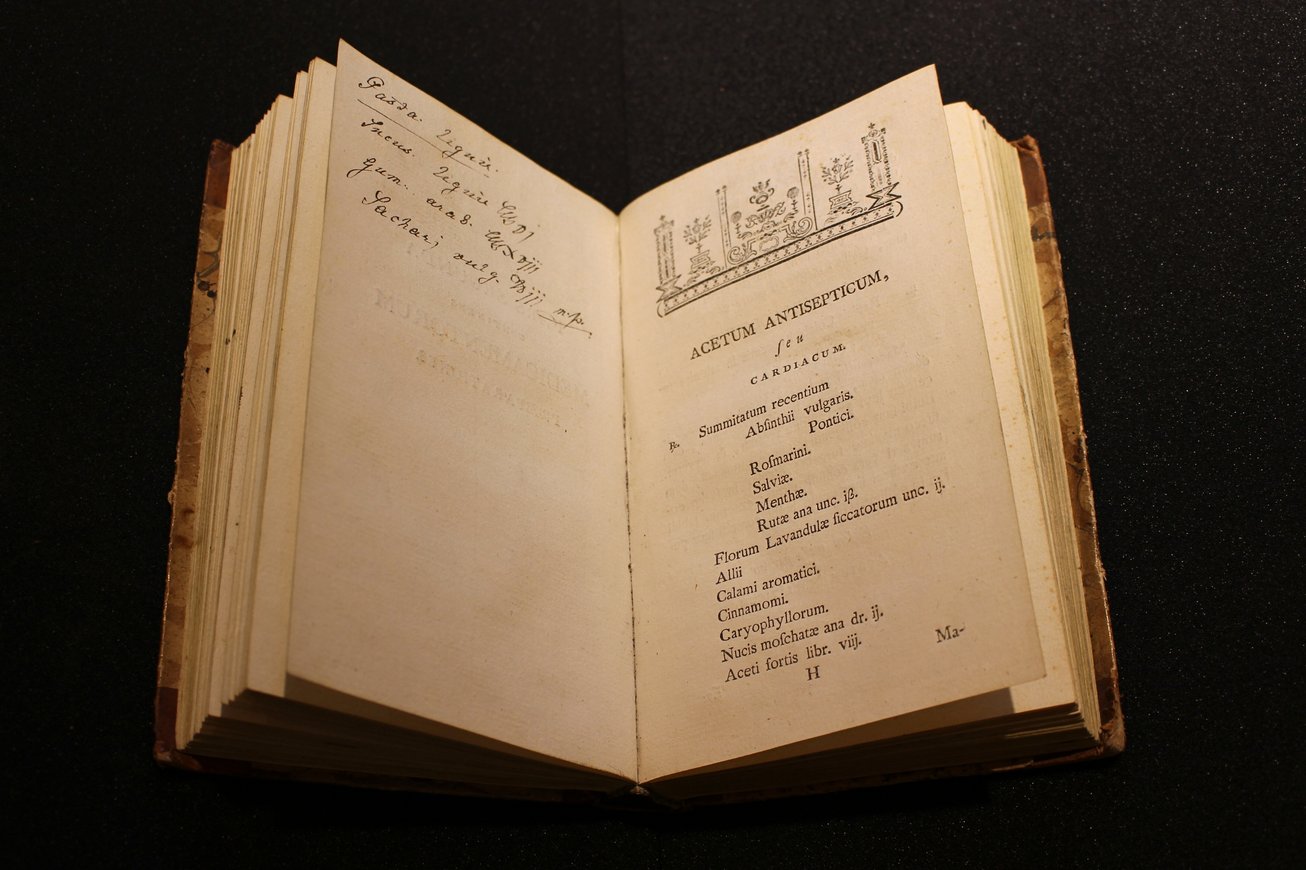 Pasta. Liquir.
Succus. Liquir
Gum. arab.
Sachari vulg.
m.p.
ACETUM ANTISEPTICUM,
ſeu
CARDIACUM.
℞. Summitatum recentium
Abſinthii vulgaris.
Pontici.
Roſmarini.
Salviæ.
Menthæ.
Rutæ ana unc. iß.
Florum Lavandulæ ſiccatorum unc. ij.
Allii
Calami aromatici.
Cinnamomi.
Caryophyllorum.
Nucis moſchatæ ana dr. ij.
Aceti fortis libr. viij.
H
Ma-